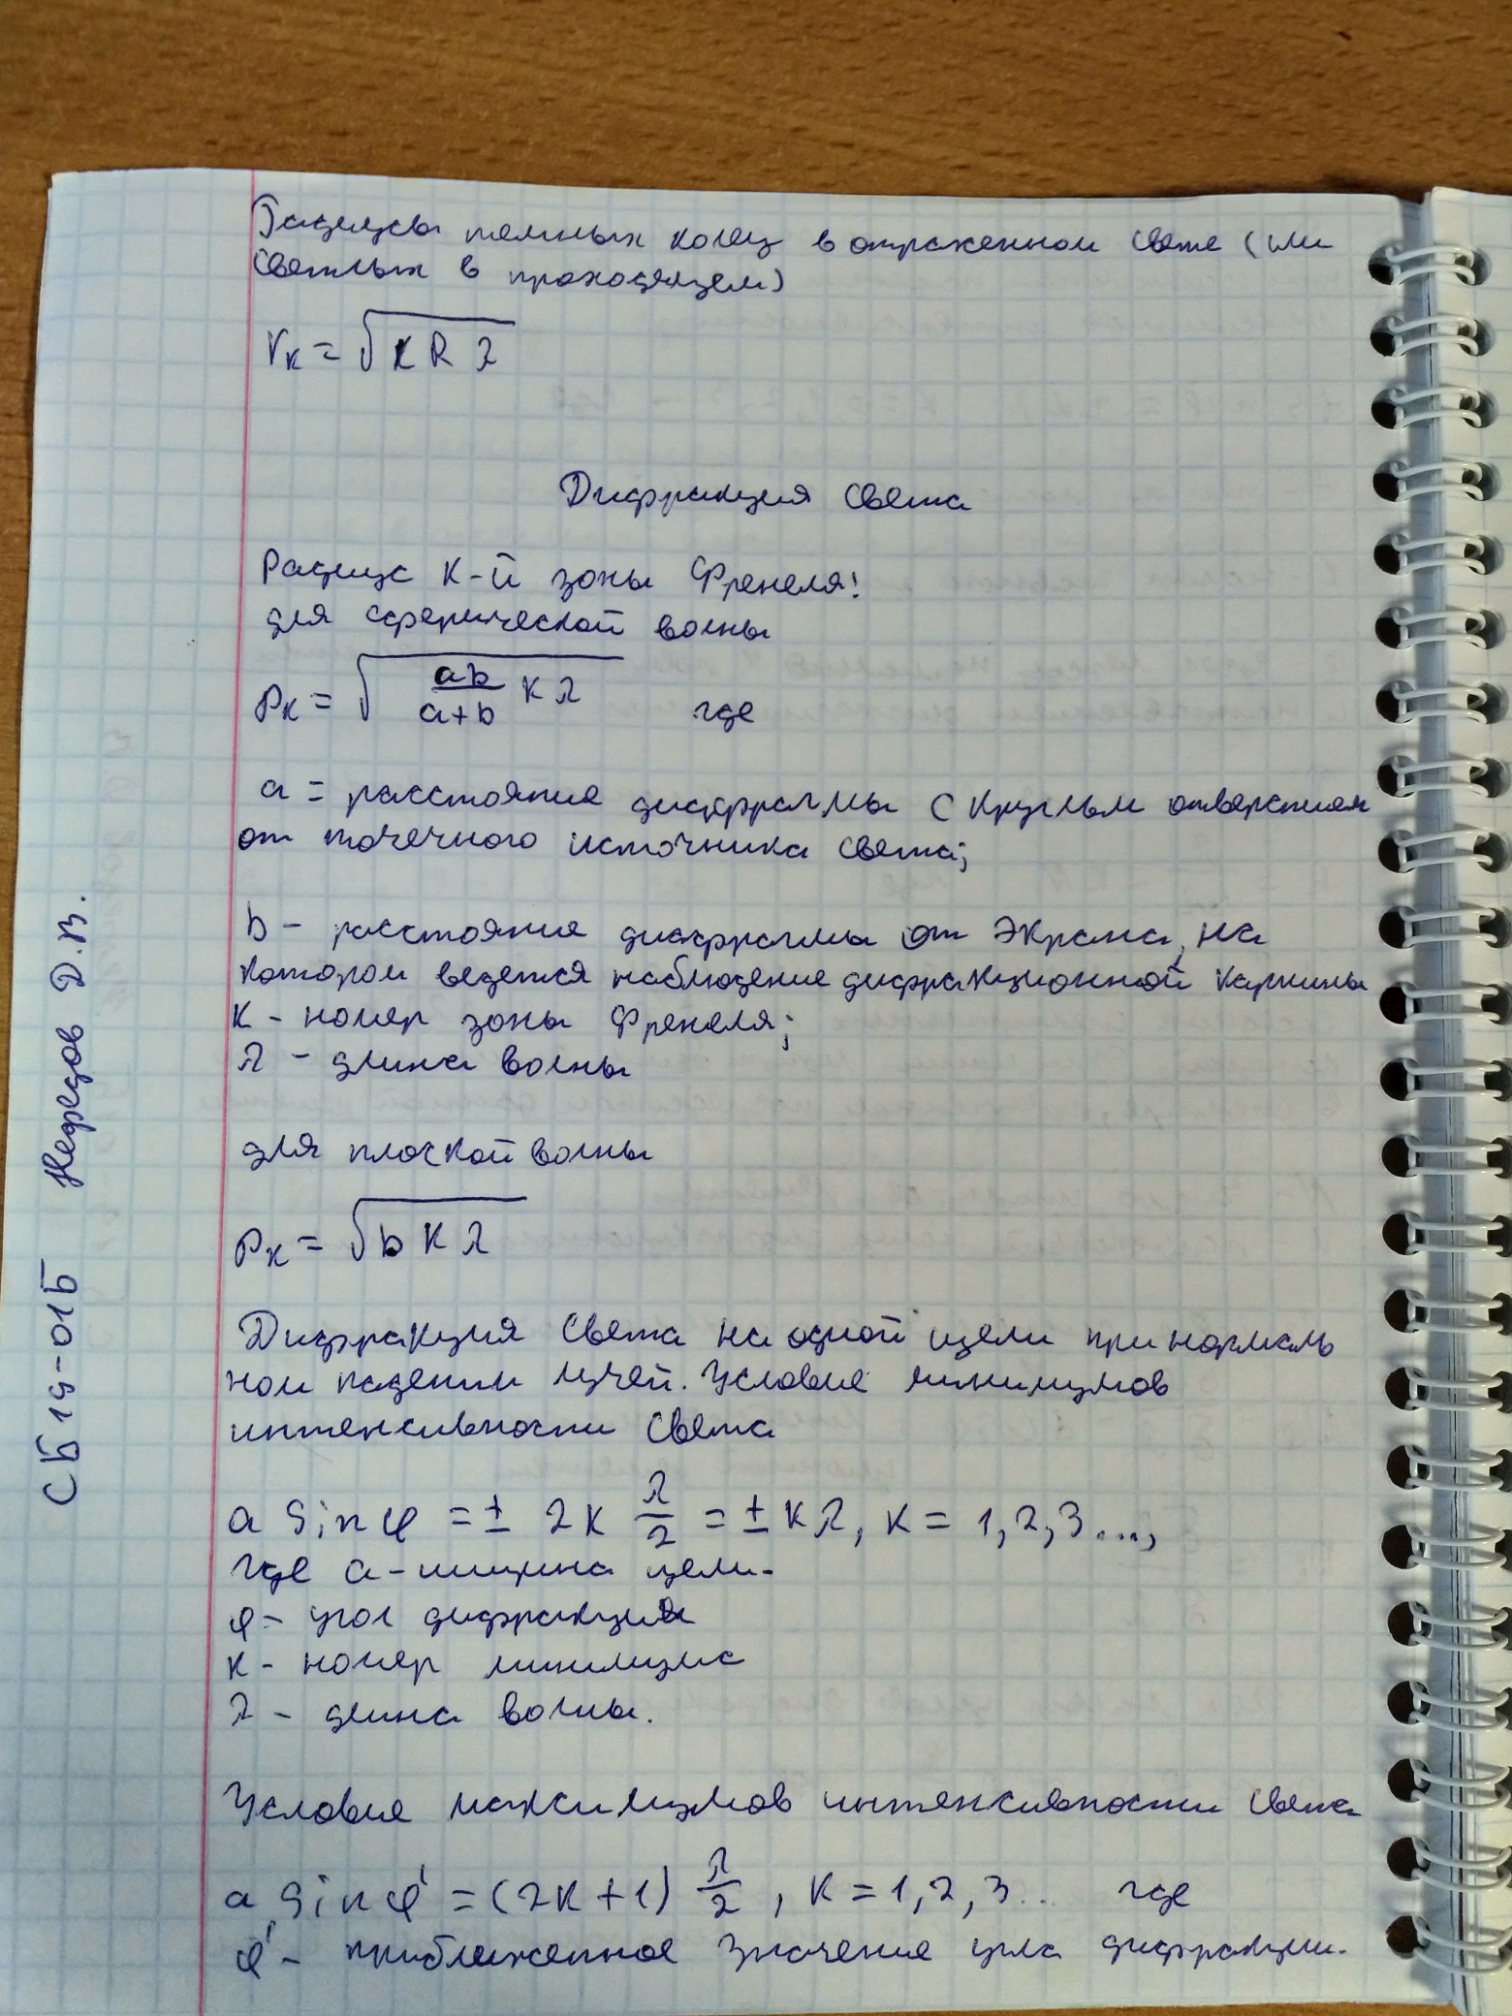 Радиусы темных колец в отраженном свете (или
светлых в проходящем)
rₖ = √(k R λ)
Дифракция света
Радиус К-й зоны Френеля:
для сферической волны
ρₖ = √(ab/(a+b) k λ) где
a = расстояние диафрагмы с круглым отверстием
от точечного источника света;
b – расстояние диафрагмы от экрана, на
котором ведется наблюдение дифракционной картины
К – номер зоны Френеля;
λ – длина волны
для плоской волны
ρₖ = √(b k λ)
Дифракция света на одной щели при нормаль
ном падении лучей. Условие минимумов
интенсивности света
a sin φ = ± 2k λ/2 = ± k λ, k = 1, 2, 3...,
где a – ширина щели.
φ – угол дифракции
k – номер минимума
λ – длина волны.
Условие максимумов интенсивности света
a sin φ' = (2k + 1) λ/2, k = 1, 2, 3... где
φ' – приближенное значение угла дифракции.
СБ19-01Б Нефедов Д.В.